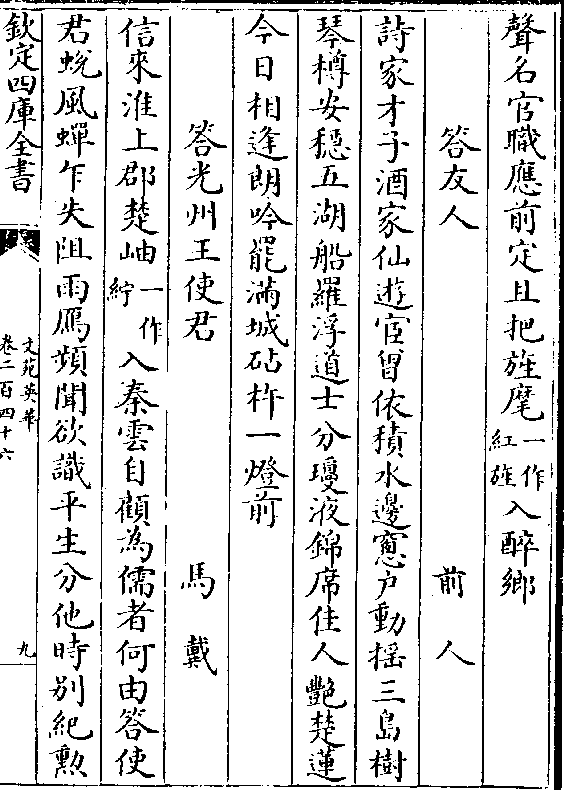 聲名官職應前定且把旌麾一作紅旌入醉鄉
答友人　前人
詩家才子酒家仙遊宦曾依積水邊窻戶動揺三島樹
琴樽安穏五湖船羅浮道士分瓊液錦席佳人艷楚蓮
今日相逢朗吟罷滿城砧杵一燈前
答光州王使君　馬戴
信來淮上郡楚岫一作紵入秦雲自顧為儒者何由答使
君蛻風蟬乍失阻雨鴈頻聞欲識平生分他時别紀勲
欽定四庫全書
文苑英華
卷二百四十六
九